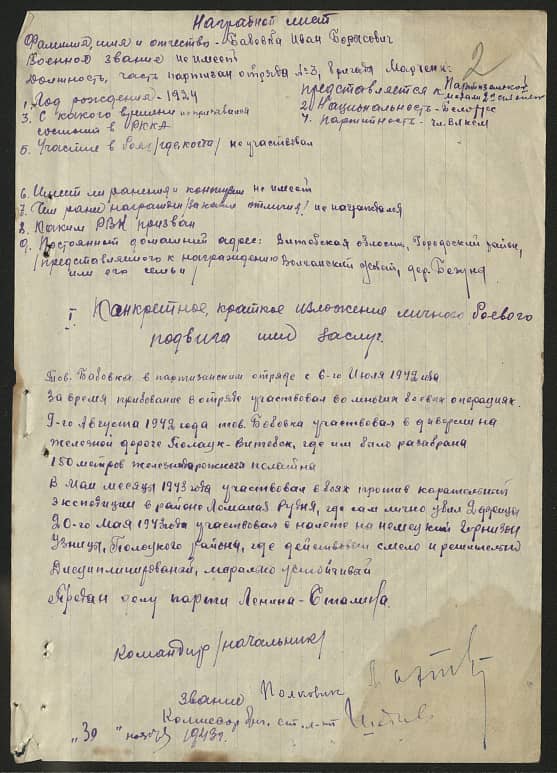 Награбной лист
Фамилия, имя и отчество - Бабовка Иван Борисович
Военное звание не имеет
2
Должность, часть партизан отряда №3, бригада Марченк.
представляется к Партизанской
медали 2ой степени
1. Год рождения - 1924
2. Национальность - Белорус
3. С какого времени
состоит в РККА
4. Партитность - чл ВЛКСМ
5. Участие в боях /где, когда/ не участвовал
6. Имеет ли ранения и контузии не имеет
7. Чем ране награжден /за какие отличия/ не награждался
8. Каким РВК призван
9. Постоянный домашний адрес: Витебская область, Городоский район,
/представляемого к награждению Волканский с/совет, дер.
или его семьи/
I Канкретное, краткое изложение личного боевого
подвига или заслуг.
Тов. Бабовка в партизанским отряде с 6-го Июля 1942 года
За время прибование в отряде участвовал во многих боевых операциях.
9-го Августа 1942 года тов. Бабовка участвовал в диверсии на
железной дороге Полацк-Витебск, где им было разаврана
150 метров железнодарожного полатна
В Маи месяцы 1943 года участвовал в боях против карательной
экспедиции в районе Ломаная Рубня, где сам лично убил 2 фрицы
20-го Мая 1943 года участвовал в налете на немецкий гарнизон
Узница, Полоцкого района, где действовал смело и решительно
Дисциплинированый, марално устойчивый
Предан делу партии Ленина - Сталина.
Командир /начальник/
Звание Полковник
Комиссар бриг. ст. л-нт
"30" ноября 1943 г.